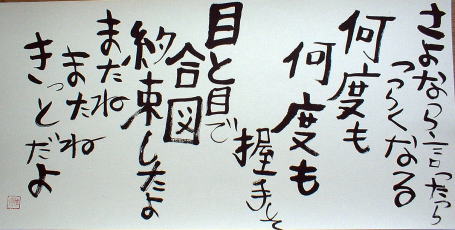 さよなら言ったら
つらくなる
何度も
何度も
握手して
目と目で
合図
約束したよ
またね
またね
きっとだよ